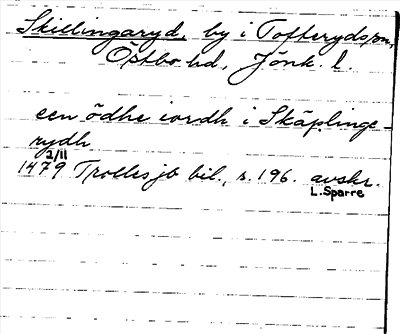 Skillingaryd, by i Tofteryds sn,
Östbo hd, Jönk. l.
een ödhe iordh i Skäplinge-
rydh
2/11
1479 Trolles jb bil., s. 196. avskr.
L. Sparre